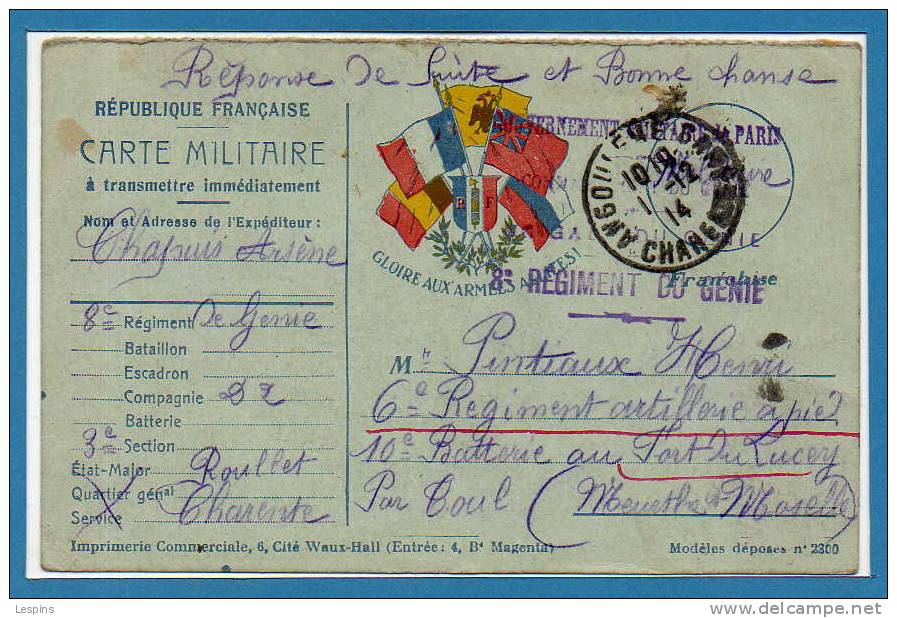 Réponse de Suite et Bonne chanse
RÉPUBLIQUE FRANÇAISE
CARTE MILITAIRE
à transmettre immédiatement
Nom et Adresse de l'Expéditeur :
Chapuis Arsène
8e Régiment De Genie
Bataillon
Escadron
Compagnie D 2
Batterie
3e Section
État-Major Roullet
Quartier génal Charente
Service
Imprimerie Commerciale, 6, Cité Waux-Hall (Entrée : 4, Bd Magenta)
R F
GLOIRE AUX ARMÉES ALLIÉES!
GOUVERNEMENT MILITAIRE de PARIS
10
12
1
14
ANGOULEME
CHARENTE
Franchise
8e RÉGIMENT DU GÉNIE
Mr Pintiaux Henri
6e Regiment artillerie a pied
10e Batterie au Fort du Lucey
Par Toul (Meurthe et Moselle)
Modèles déposés n° 2300
Lespins
http://www.delcampe.net